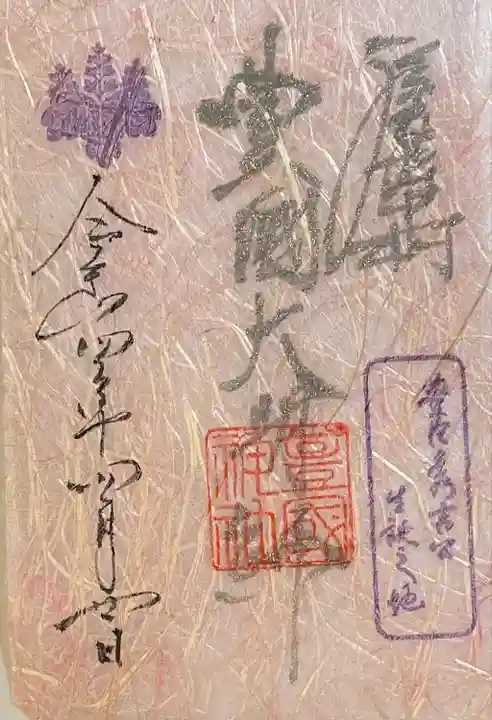 豊國大明神
豊國
神社
豊臣秀吉公
生誕之地
令和四年四月廿日